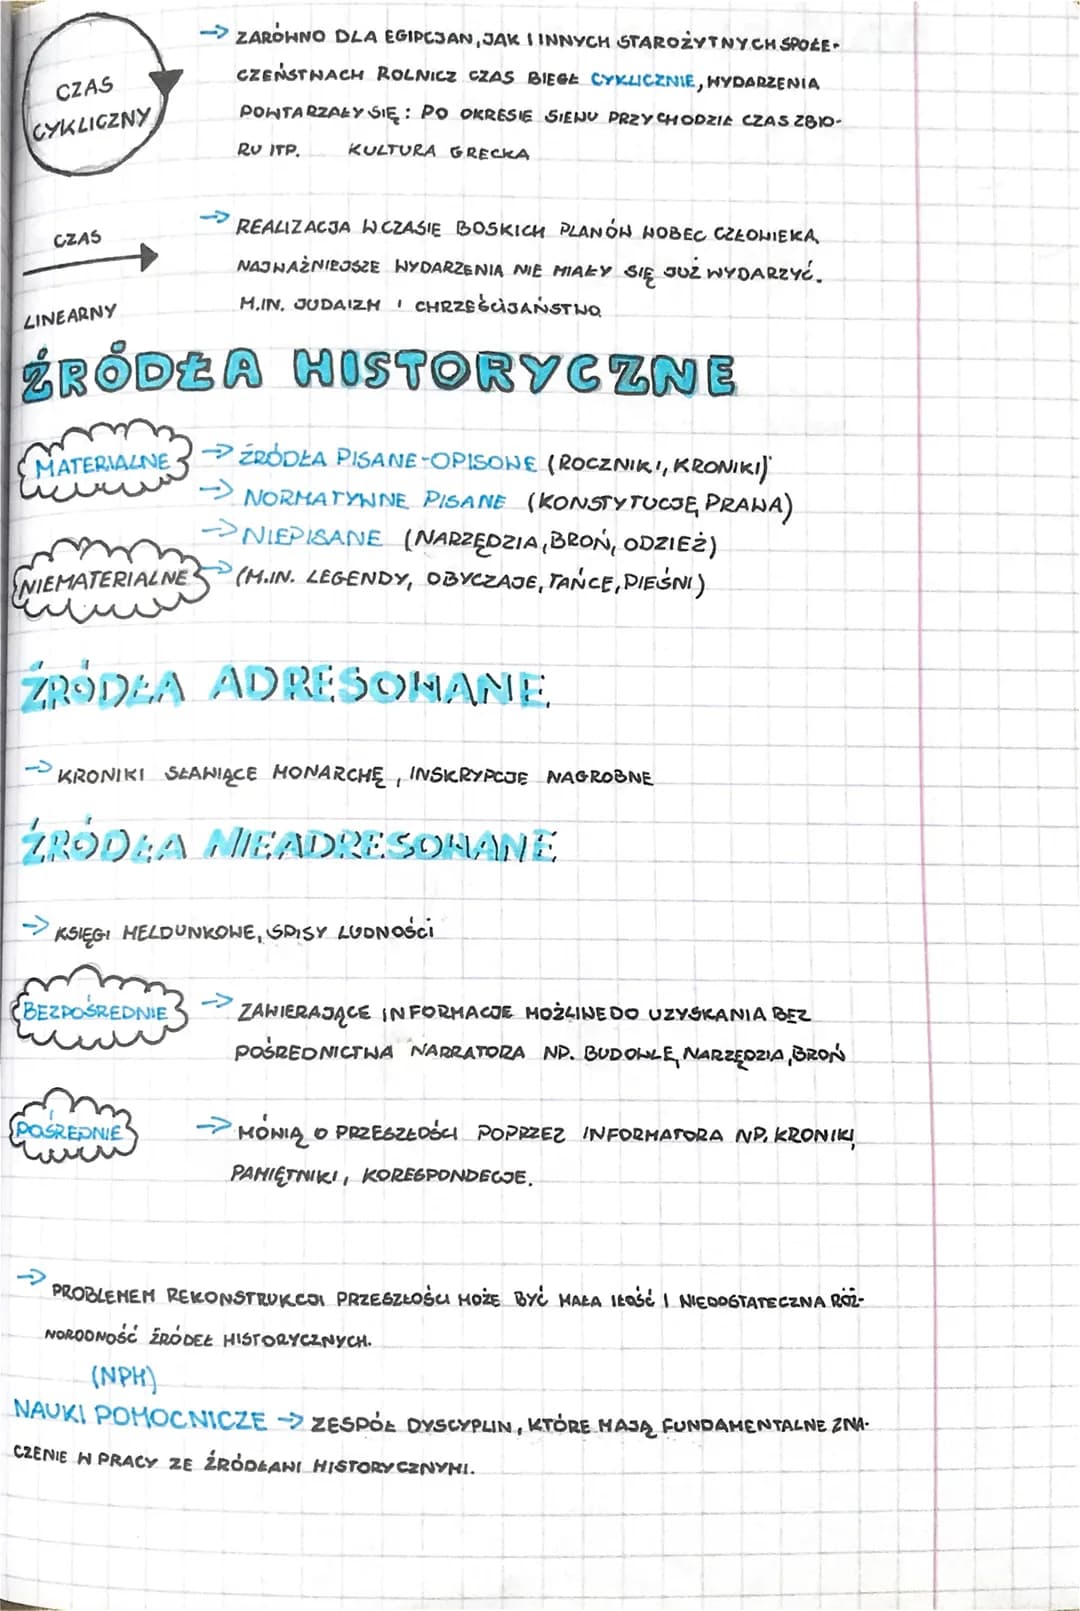 CZAS
CYKLICZNY
→ ZARÓWNO DLA EGIPCJAN, JAK I INNYCH STAROŻYTNYCH SPOŁE-
CZEŃSTWACH ROLNICZ CZAS BIEGŁ CYKLICZNIE, WYDARZENIA
POWTARZAŁY SIĘ: PO OKRESIE SIEWU PRZYCHODZIŁ CZAS ZBIO-
RU ITP. KULTURA GRECKA
CZAS
LINEARNY
→ REALIZACJA W CZASIE BOSKICH PLANÓW WOBEC CZŁOWIEKA,
NAJWAŻNIEJSZE WYDARZENIA NIE MIAŁY SIĘ JUŻ WYDARZYĆ.
M.IN. JUDAIZM I CHRZEŚCIJAŃSTWO
ŹRÓDŁA HISTORYCZNE
MATERIALNE → ŹRÓDŁA PISANE-OPISOWE (ROCZNIKI, KRONIKI)
→ NORMATYWNE PISANE (KONSTYTUCJE, PRAWA)
→ NIEPISANE (NARZĘDZIA, BROŃ, ODZIEŻ)
NIEMATERIALNE → (M.IN. LEGENDY, OBYCZAJE, TAŃCE, PIEŚNI)
ŹRÓDŁA ADRESOWANE
→ KRONIKI SŁAWIĄCE MONARCHĘ, INSKRYPCJE NAGROBNE
ŹRÓDŁA NIEADRESOWANE
→ KSIĘGI MELDUNKOWE, SPISY LUDNOŚCI
BEZPOŚREDNIE → ZAWIERAJĄCE INFORMACJE MOŻLIWE DO UZYSKANIA BEZ
POŚREDNICTWA NARRATORA NP. BUDOWLE, NARZĘDZIA, BROŃ
POŚREDNIE → MÓWIĄ O PRZESZŁOŚCI POPRZEZ INFORMATORA NP. KRONIKI,
PAMIĘTNIKI, KORESPONDECJE.
→ PROBLEMEM REKONSTRUKCJI PRZESZŁOŚCI MOŻE BYĆ MAŁA ILOŚĆ I NIEDOSTATECZNA RÓŻ-
NORODNOŚĆ ŹRÓDEŁ HISTORYCZNYCH.
(NPH)
NAUKI POMOCNICZE → ZESPÓŁ DYSCYPLIN, KTÓRE MAJĄ FUNDAMENTALNE ZNA-
CZENIE W PRACY ZE ŹRÓDŁAMI HISTORYCZNYMI.